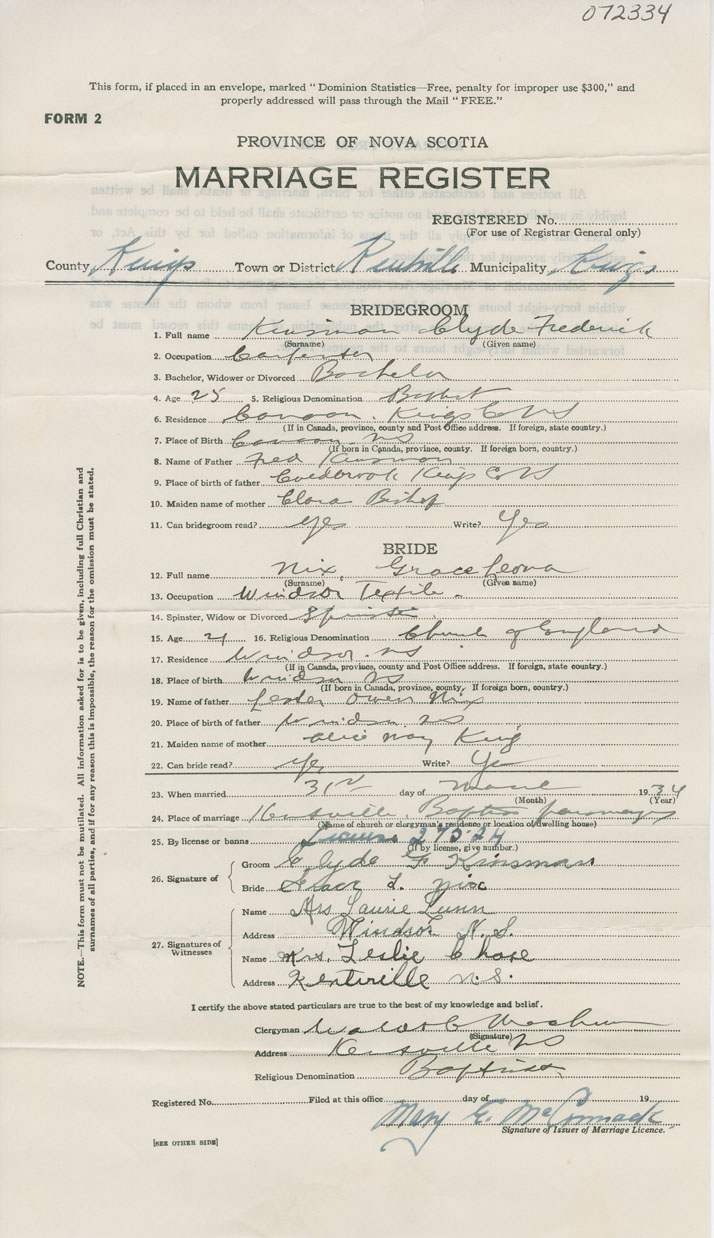 072334
This form, if placed in an envelope, marked "Dominion Statistics—Free, penalty for improper use $300," and
properly addressed will pass through the Mail "FREE."
FORM 2
PROVINCE OF NOVA SCOTIA
MARRIAGE REGISTER
REGISTERED No.
(For use of Registrar General only)
County Kings Town or District Kentville Municipality Kings
BRIDEGROOM
1. Full name Kinsman Clyde Frederick
(Surname) (Given name)
2. Occupation Carpenter
3. Bachelor, Widower or Divorced Bachelor
4. Age 25 5. Religious Denomination Baptist
6. Residence Canaan. Kings Co NS
(If in Canada, province, county and Post Office address. If foreign, state country.)
7. Place of Birth Canaan NS
(If born in Canada, province, county. If foreign born, country.)
8. Name of Father Fred Kinsman
9. Place of birth of father Coldbrook Kings Co NS
10. Maiden name of mother Clara Bishop
11. Can bridegroom read? yes Write? Yes
BRIDE
12. Full name Nix, Grace Leona
(Surname) (Given name)
13. Occupation Windsor Textile
14. Spinster, Widow or Divorced Spinster
15. Age 21 16. Religious Denomination Church of England
17. Residence Windsor NS
(If in Canada, province, county and Post Office address. If foreign, state country.)
18. Place of birth Windsor NS
(If born in Canada, province, county. If foreign born, country.)
19. Name of father Lester Owen Nix
20. Place of birth of father Windsor, NS
21. Maiden name of mother Alice May King
22. Can bride read? yes Write? Yes
23. When married 31 day of 1934
(Month) (Year)
24. Place of marriage Kentville, Baptist Parsonage
(Name of church or clergyman's residence or location of dwelling house)
25. By license or banns License 27524
(If by license, give number.)
26. Signature of
Groom Clyde F Kinsman
Bride Grace L. Nix
27. Signatures of Witnesses
Name Mrs Laurie Lunn
Address Windsor N.S.
Name Mrs. Leslie Chase
Address Kentville N.S.
I certify the above stated particulars are true to the best of my knowledge and belief.
Clergyman
(Signature)
Address Kentville NS
Religious Denomination Baptist
Registered No. Filed at this office day of 19
Mary E. McCormack
Signature of Issuer of Marriage Licence.
[SEE OTHER SIDE]
NOTE.—This form must not be mutilated. All information asked for is to be given, including full Christian and
surnames of all parties, and if for any reason this is impossible, the reason for the omission must be stated.